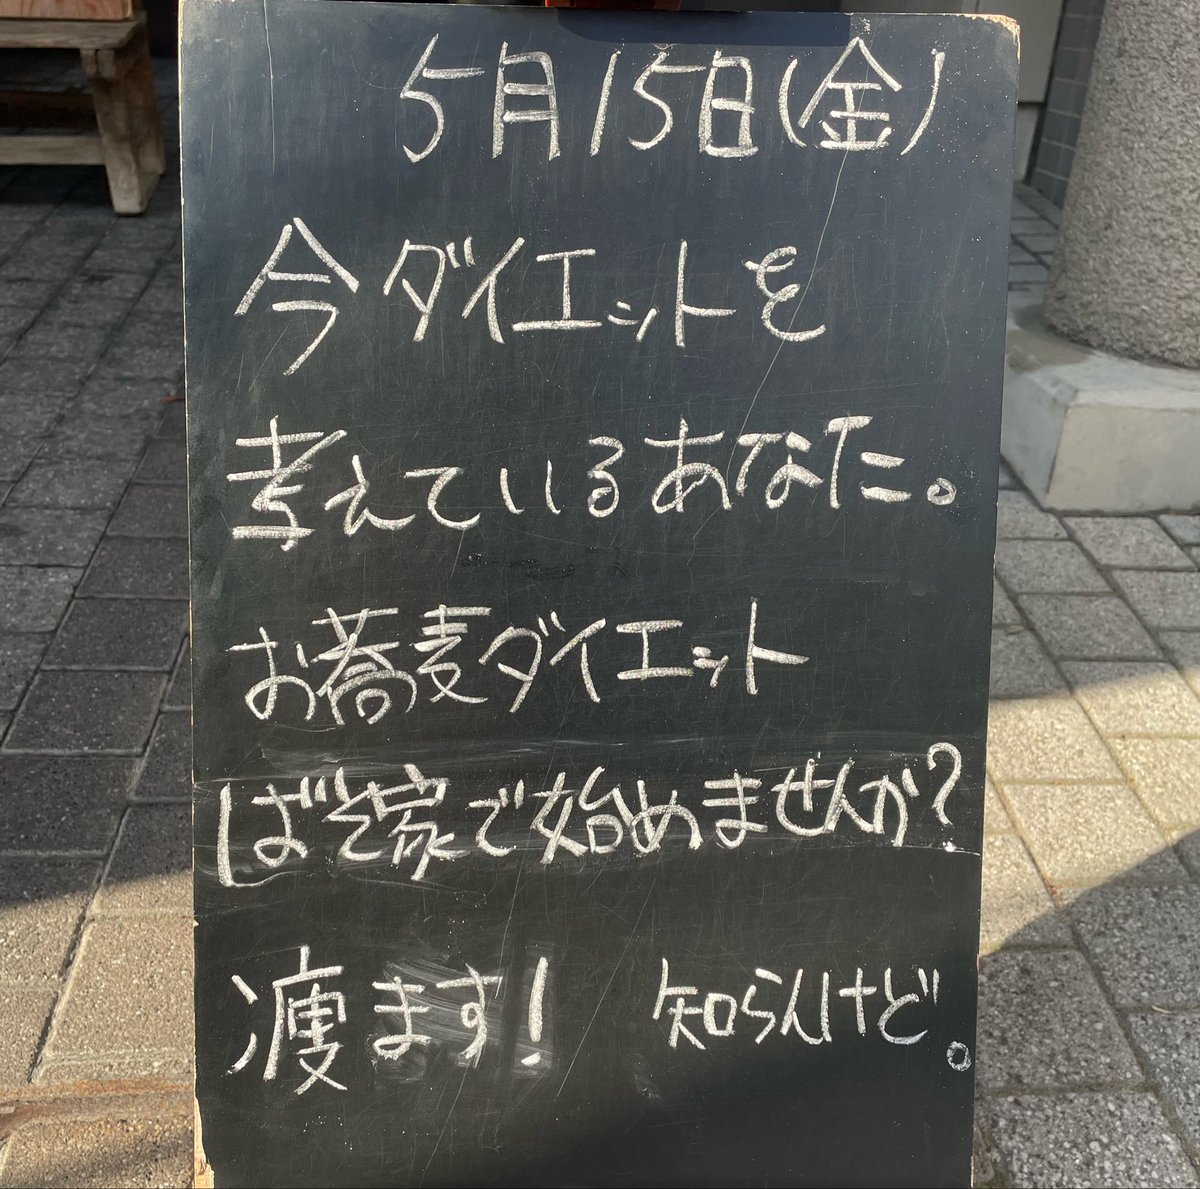 5月15日(金)
今ダイエットを
考えているあなた。
お蕎麦ダイエット
ばそ家で始めませんか?
痩ます! 知らんけど。